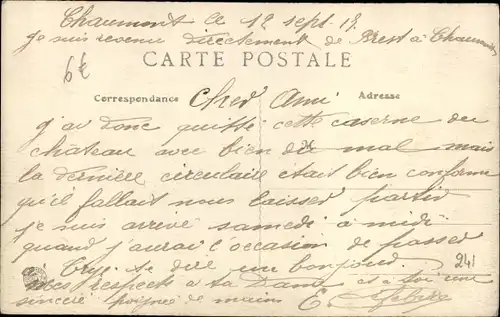 Chaumont le 12 sept. 18.
je suis revenu directement de Brest à Chaumont
6€
CARTE POSTALE
Correspondance
Adresse
Cher Ami
j'ai donc quitté cette caserne du
château avec bien du mal mais
la dernière circulaire était bien conforme
qu'il fallait nous laisser partir
je suis arrivé samedi à midi
quand j'aurai l'occasion de passer
à te dire un bonjour.
241
mes respects à ta Dame et à toi une
sincère poignée de mains E.